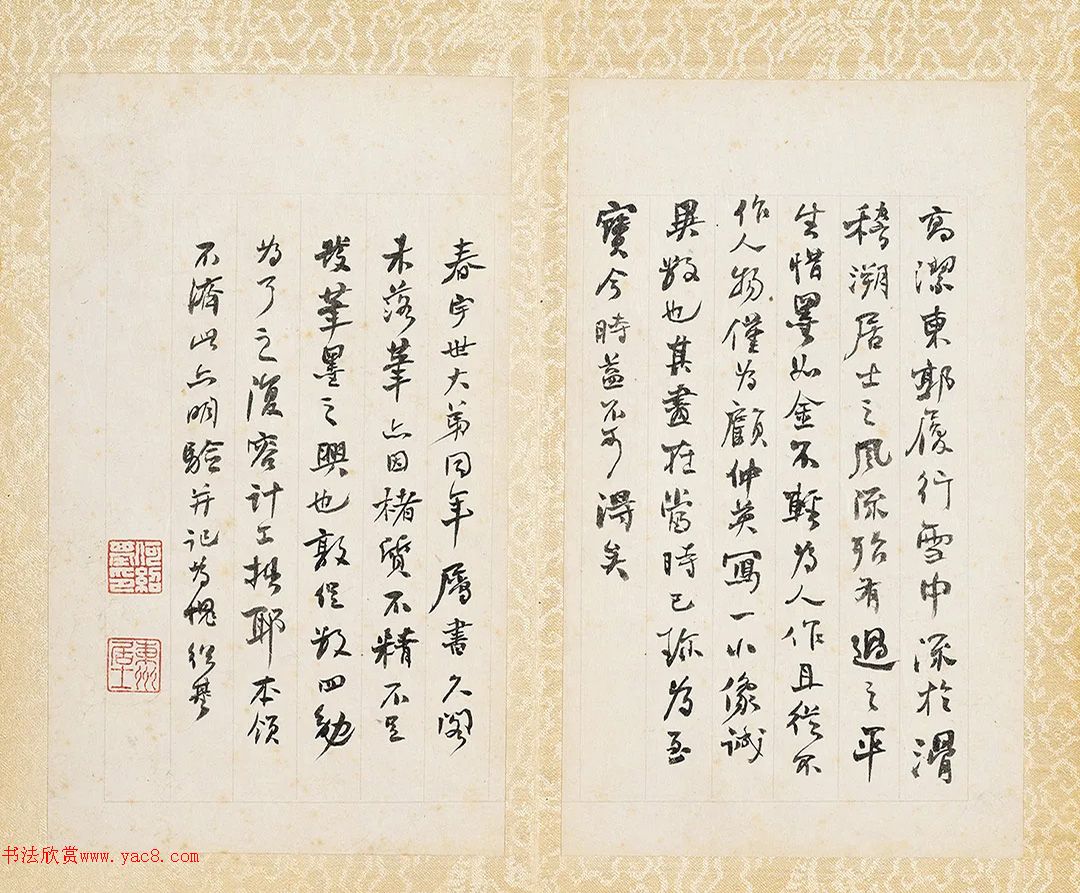 高潔東郭履行雪中深於滑
稽溯居士之風流殆有過之平
生惜墨如金不輕為人作且從不
作人物僅為顧仲英寫一小像誠
異數也其畫在當時已珍為至
寶今時益不可得矣
春宇世大弟同年屬書久閣
未落筆亦因楮質不精不足
發筆墨之興也敦促數四勉
為了之復容計工拙耶本領
不濟此亦明驗并記為愧紹基
何紹基印
東洲居士
书法欣赏www.yac8.com